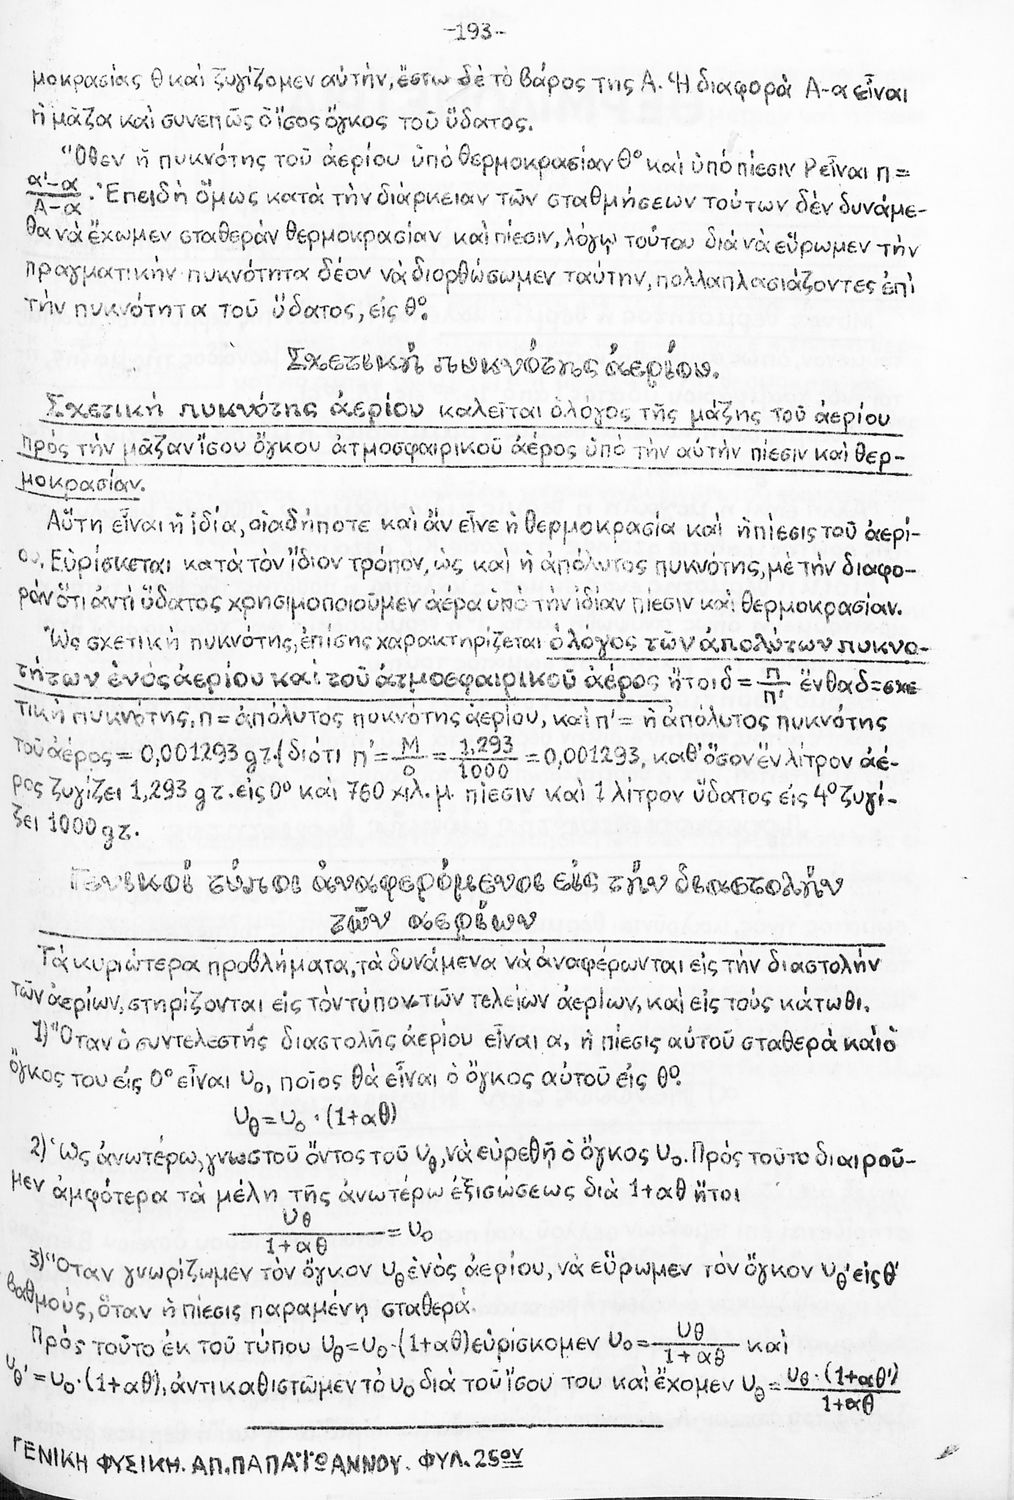 -193-
μοκρασίας θ καὶ ζυγίζομεν αὐτήν, ἔστω δὲ τὸ βάρος της Α. Ἡ διαφορὰ Α-α εἶναι
ἡ μᾶζα καὶ συνεπῶς ὁ ἴσος ὄγκος τοῦ ὕδατος.
Ὅθεν ἡ πυκνότης τοῦ ἀερίου ὑπὸ θερμοκρασίαν θ° καὶ ὑπὸ πίεσιν P εἶναι π =
α'-α / Α-α . Ἐπειδὴ ὅμως κατὰ τὴν διάρκειαν τῶν σταθμήσεων τούτων δὲν δυνάμε-
θα νὰ ἔχωμεν σταθερὰν θερμοκρασίαν καὶ πίεσιν, λόγῳ τούτου διὰ νὰ εὕρωμεν τὴν
πραγματικὴν πυκνότητα δέον νὰ διορθώσωμεν ταύτην, πολλαπλασιάζοντες ἐπὶ
τὴν πυκνότητα τοῦ ὕδατος, εἰς θ°.
Σχετικὴ πυκνότης ἀερίου.
Σχετικὴ πυκνότης ἀερίου καλεῖται ὁ λόγος τῆς μάζης τοῦ ἀερίου
πρὸς τὴν μᾶζαν ἴσου ὄγκου ἀτμοσφαιρικοῦ ἀέρος ὑπὸ τὴν αὐτὴν πίεσιν καὶ θερ-
μοκρασίαν.
Αὕτη εἶναι ἡ ἰδία, οἱαδήποτε καὶ ἂν εἶνε ἡ θερμοκρασία καὶ ἡ πίεσις τοῦ ἀερί-
ου. Εὑρίσκεται κατὰ τὸν ἴδιον τρόπον, ὡς καὶ ἡ ἀπόλυτος πυκνότης, μὲ τὴν διαφο-
ρὰν ὅτι ἀντὶ ὕδατος χρησιμοποιοῦμεν ἀέρα ὑπὸ τὴν ἰδίαν πίεσιν καὶ θερμοκρασίαν.
Ὡς σχετικὴ πυκνότης, ἐπίσης χαρακτηρίζεται ὁ λόγος τῶν ἀπολύτων πυκνο-
τήτων ἑνὸς ἀερίου καὶ τοῦ ἀτμοσφαιρικοῦ ἀέρος ἤτοι d = π / π' ἔνθα d = σχε
τικὴ πυκνότης, π = ἀπόλυτος πυκνότης ἀερίου, καὶ π' = ἡ ἀπόλυτος πυκνότης
τοῦ ἀέρος = 0,001293 gr. (διότι π' = M / 0 = 1,293 / 1000 = 0,001293, καθ' ὅσον ἓν λίτρον ἀέ-
ρος ζυγίζει 1,293 gr. εἰς 0° καὶ 760 χιλ. μ. πίεσιν καὶ 1 λίτρον ὕδατος εἰς 4° ζυγί-
ζει 1000 gr.
Γενικοὶ τύποι ἀναφερόμενοι εἰς τὴν διαστολὴν
τῶν ἀερίων
Τὰ κυριώτερα προβλήματα, τὰ δυνάμενα νὰ ἀναφέρωνται εἰς τὴν διαστολὴν
τῶν ἀερίων, στηρίζονται εἰς τὸν τύπον τῶν τελείων ἀερίων, καὶ εἰς τοὺς κάτωθι.
1) Ὅταν ὁ συντελεστὴς διαστολῆς ἀερίου εἶναι α, ἡ πίεσις αὐτοῦ σταθερὰ καὶ ὁ
ὄγκος του εἰς 0° εἶναι υ₀, ποῖος θὰ εἶναι ὁ ὄγκος αὐτοῦ εἰς θ°.
υθ = υ₀ · (1+αθ)
2) Ὡς ἀνωτέρω, γνωστοῦ ὄντος τοῦ υθ, νὰ εὑρεθῇ ὁ ὄγκος υ₀. Πρὸς τοῦτο διαιροῦ-
μεν ἀμφότερα τὰ μέλη τῆς ἀνωτέρω ἐξισώσεως διὰ 1+αθ ἤτοι
υθ / 1+αθ = υ₀
3) Ὅταν γνωρίζωμεν τὸν ὄγκον υθ ἑνὸς ἀερίου, νὰ εὕρωμεν τὸν ὄγκον υθ' εἰς θ'
βαθμούς, ὅταν ἡ πίεσις παραμένῃ σταθερά.
Πρὸς τοῦτο ἐκ τοῦ τύπου υθ = υ₀ · (1+αθ) εὑρίσκομεν υ₀ = υθ / 1+αθ καὶ
υθ' = υ₀ · (1+αθ'), ἀντικαθιστῶμεν τὸ υ₀ διὰ τοῦ ἴσου του καὶ ἔχομεν υθ = υθ · (1+αθ') / 1+αθ
ΓΕΝΙΚΗ ΦΥΣΙΚΗ. ΑΠ. ΠΑΠΑΪΩΑΝΝΟΥ. ΦΥΛ. 25ον